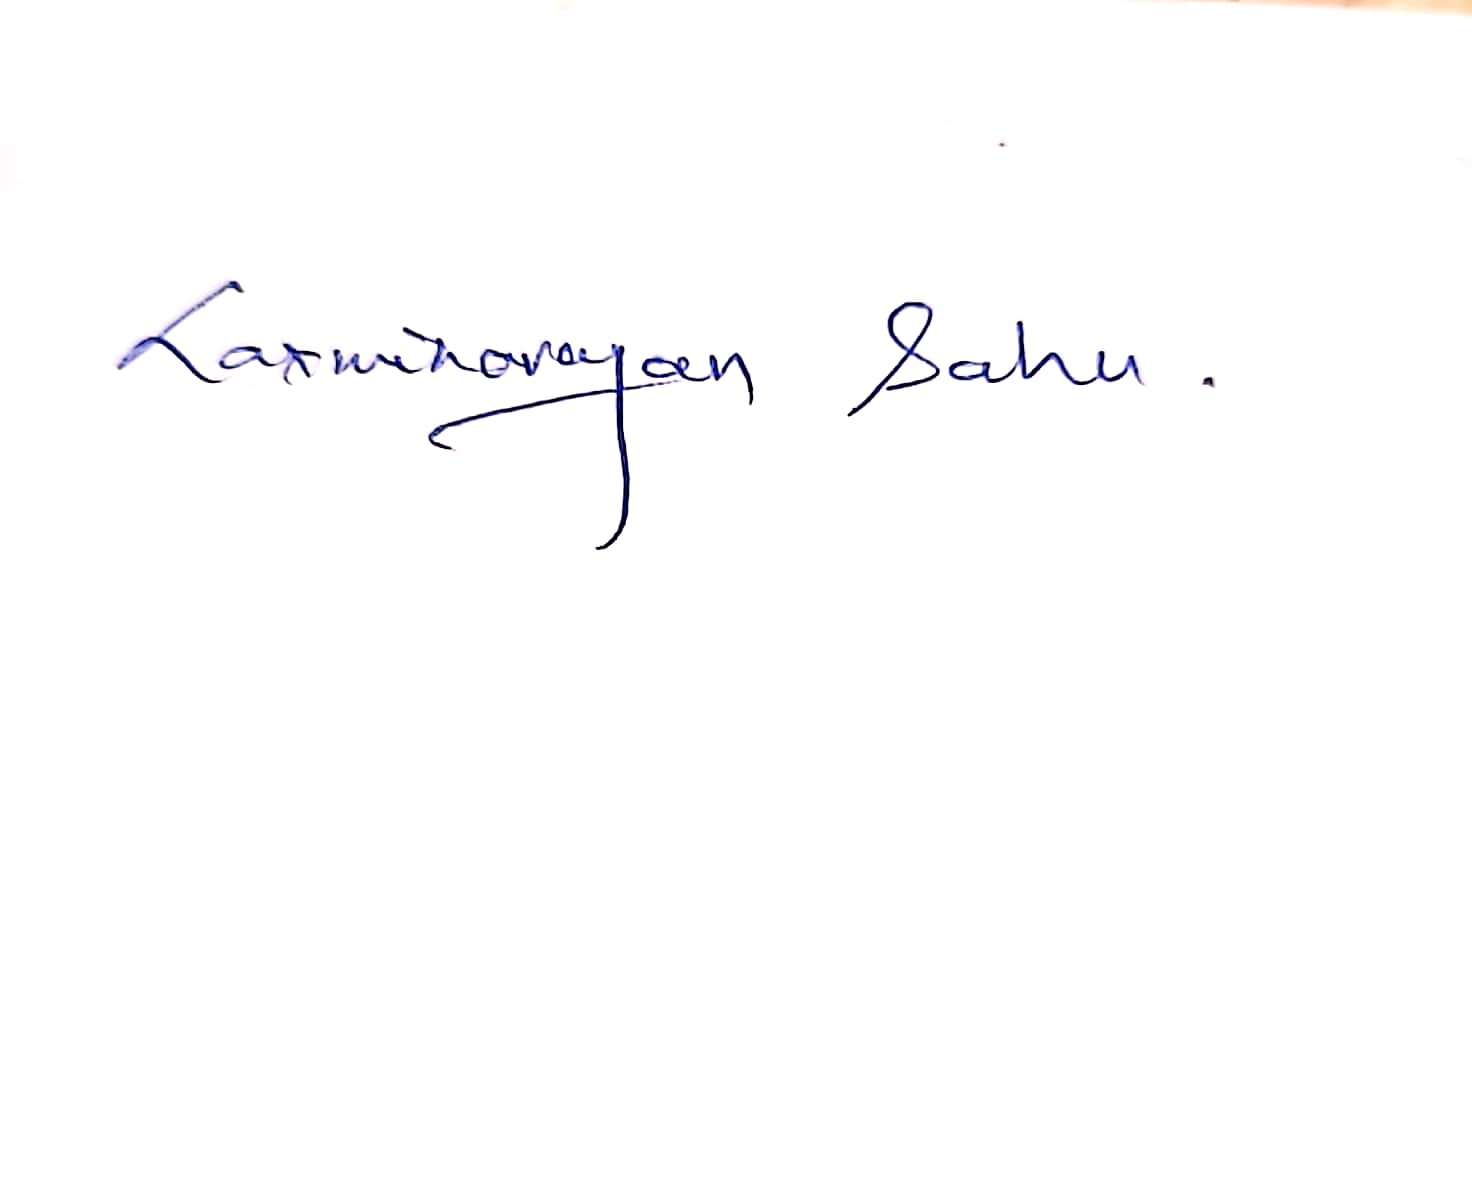 Laxminarayan Sahu.